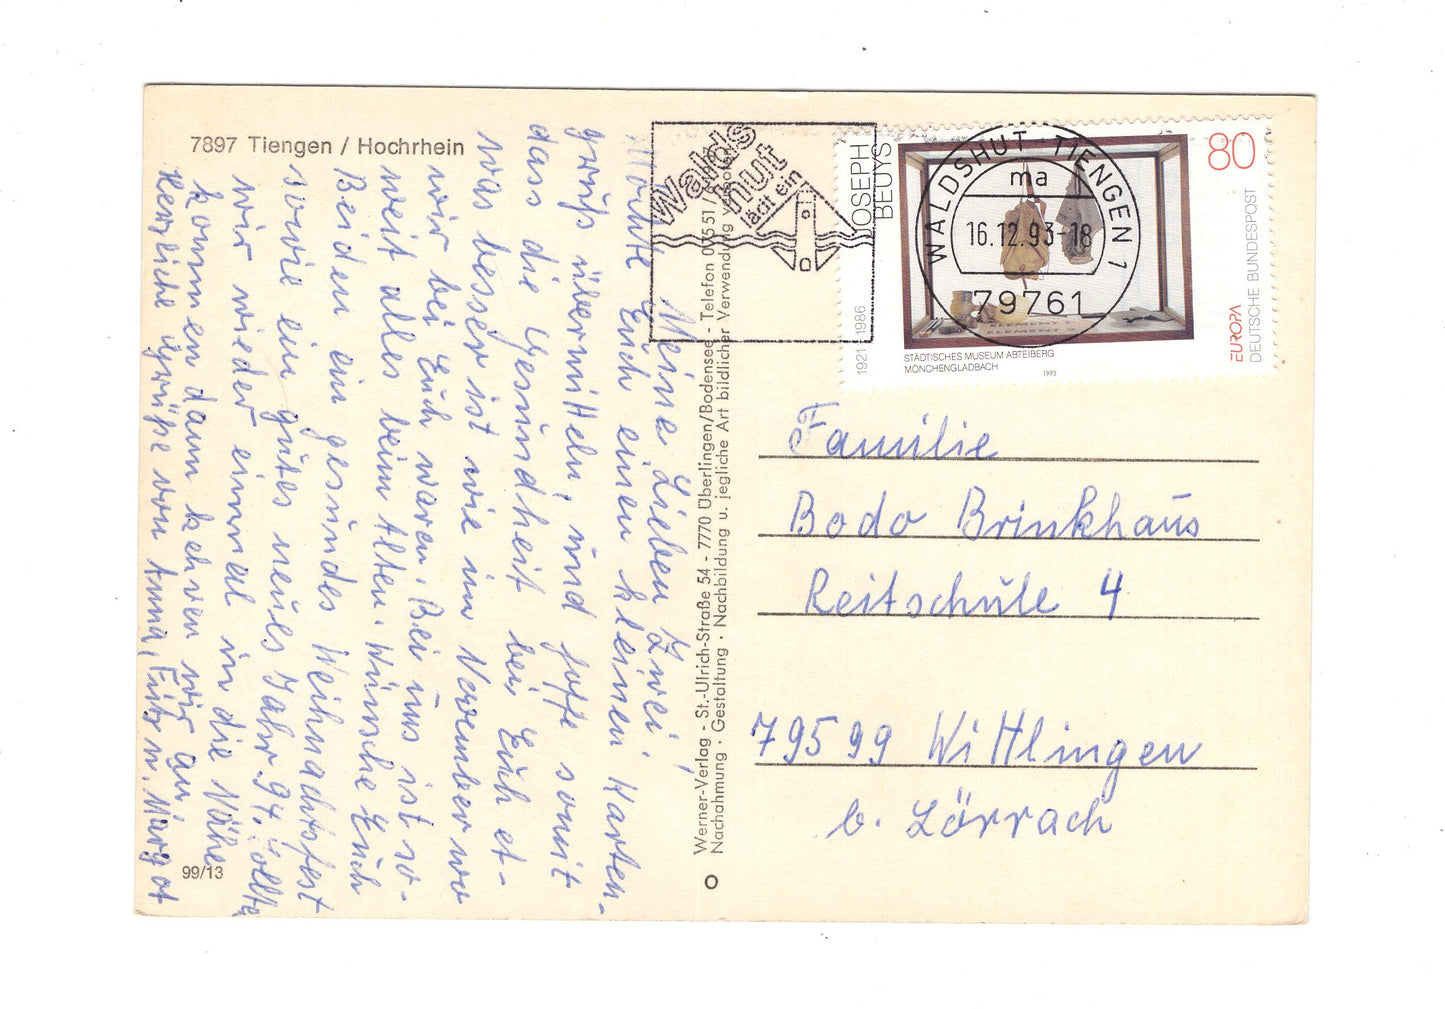 7897 Tiengen / Hochrhein
Meine Lieben Zwei!
Möchte Euch einen kleinen Karten-
gruß übermitteln, und hoffe somit
dass die Gesundheit bei Euch et-
was besser ist wie im November wo
wir bei Euch waren. Bei uns ist so-
weit alles beim Alten. Wünsche Euch
Beiden ein gesundes Weihnachtsfest
sowie ein gutes neues Jahr 94, sollte
wir wieder einmal in die Nähe
kommen dann kehren wir an,
Herzliche Grüße von Anna, Fritz u. Margot
99/13
Werner-Verlag - St.-Ulrich-Straße 54 - 7770 Überlingen/Bodensee - Telefon 07551/
Nachahmung · Gestaltung · Nachbildung u. jegliche Art bildlicher Verwendung verboten
Walds
hut
lädt ein
JOSEPH
BEUYS
1921 1986
80
WALDSHUT-TIENGEN 1
ma
16.12.93-18
79761
ELEMENT 1
ELEMENT 2
STÄDTISCHES MUSEUM ABTEIBERG
MÖNCHENGLADBACH
1993
EUROPA
DEUTSCHE BUNDESPOST
Familie
Bodo Brinkhaus
Reitschule 4
79599 Wittlingen
b. Lörrach